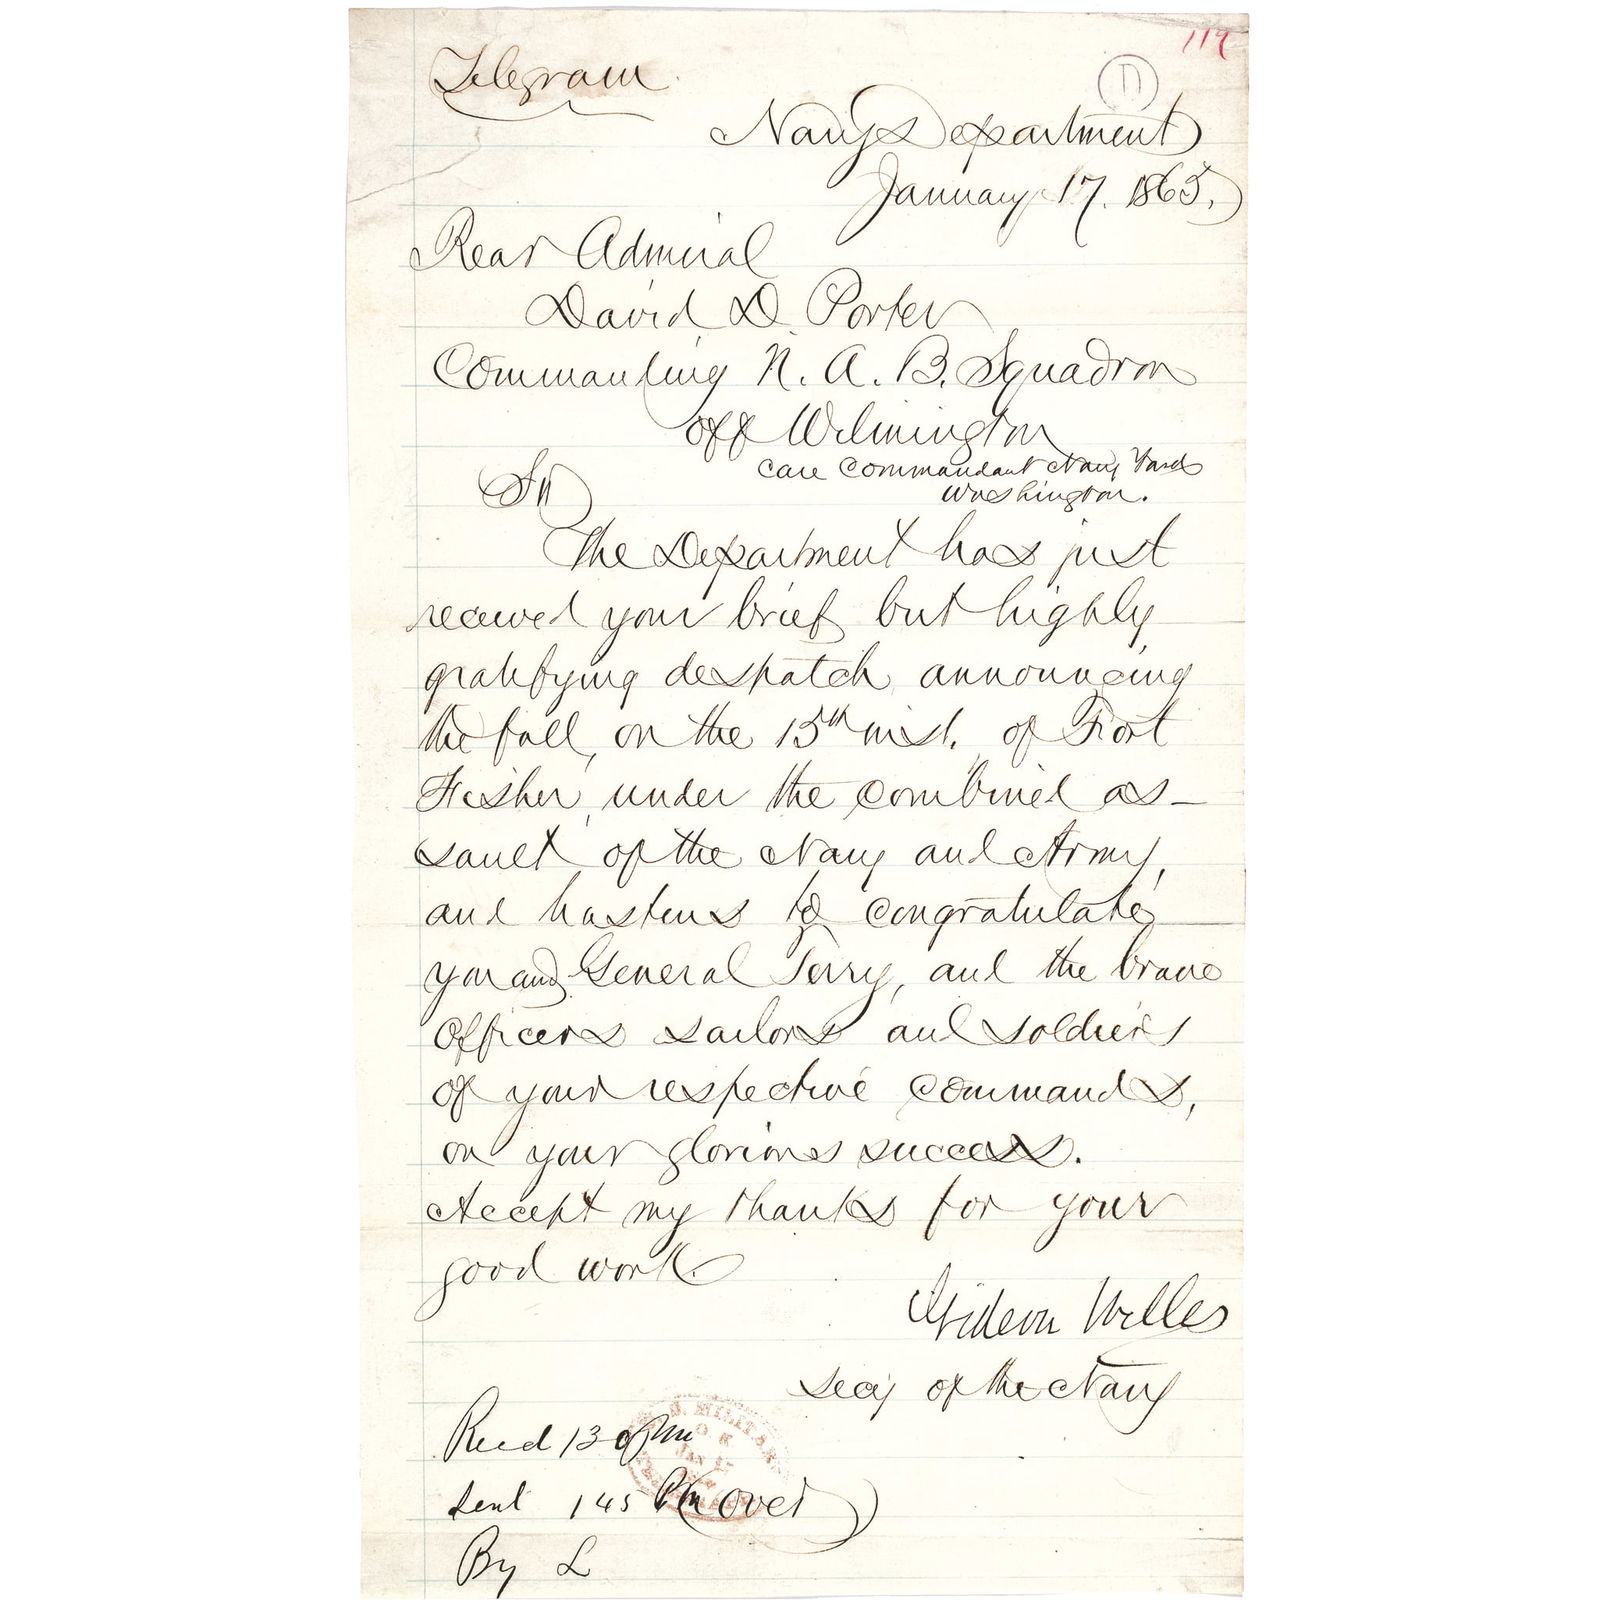 119
Telegram.
Navy Department
January 17. 1865.
Rear Admiral
David D. Porter
Commanding N. A. B. Squadron
off Wilmington
care Commandant Navy Yard
Washington.
Sir
The Department has just
received your brief but highly
gratifying despatch announcing
the fall, on the 15th inst. of Fort
Fisher, under the combined as-
sault of the Navy and Army,
and hastens to congratulate
you and General Terry, and the brave
Officers sailors and soldiers
of your respective commands,
on your glorious success.
Accept my thanks for your
good work.
Gideon Welles
Secy of the Navy
Recd 130 Pm
U.S. MILITARY
JAN 17
TELEGRAPH
Sent 145 Pm (over)
By L